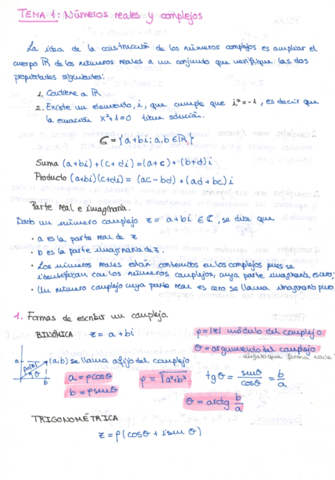 TEMA 1: Números reales y complejos
La idea de la construcción de los números complejos es ampliar el
cuerpo ℝ de los números reales a un conjunto que verifique las dos
propiedades siguientes:
1. Contiene a ℝ.
2. Existe un elemento, i, que cumple que i²=-1, es decir que
la ecuación x²+1=0 tiene solución.
ℂ={a+bi: a,b∈ℝ}
Suma (a+bi)+(c+di)=(a+c)+(b+d)i
Producto (a+bi)(c+di)= (ac-bd)+(ad+bc)i
Parte real e imaginaria.
Dado un número complejo z=a+bi∈ℂ, se dice que
• a es la parte real de z
• b es la parte imaginaria de z.
• Los números reales están contenidos en los complejos pues se
identifican con los números complejos, cuya parte imaginaria es cero;
• Un número complejo cuya parte real es cero se llama imaginario puro.
1. Formas de escribir un complejo.
BINÓMICA z=a+bi
ρ=|z| módulo del complejo
θ=argumento del complejo
ángulo que forma con
(a,b) se llama afijo del complejo
a=ρcosθ
b=ρsinθ
ρ=√a²+b²
tgθ=sinθ/cosθ=b/a
θ=arctg b/a
TRIGONOMÉTRICA
z=ρ(cosθ+i sin θ)